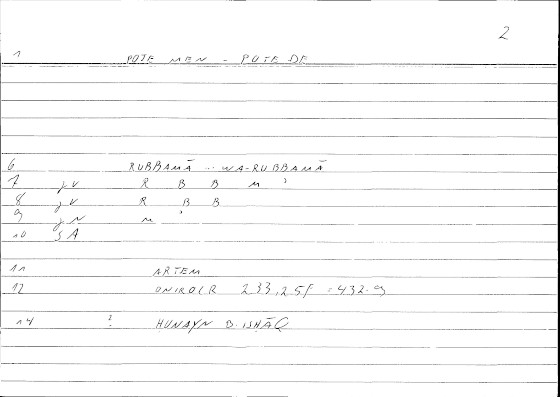 2
1 POTE MEN - POTE DE
6 RUBBAMĀ .. WA-RUBBAMĀ
7 jV R B B M ʾ
8 jV R B B
9 jN M ʾ
10 jA
11 ARTEM
12 ONIROCR 233,25f = 432.9
14 ? ḤUNAYN B. ISḤĀQ